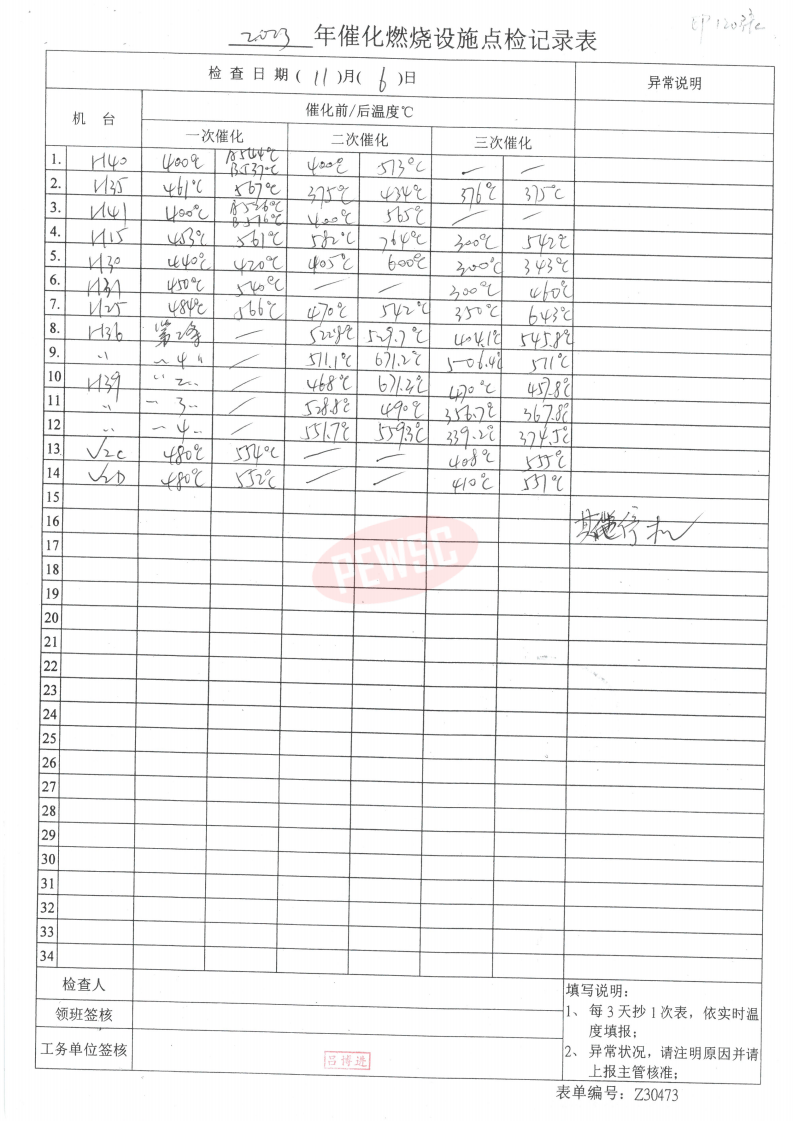 2023 年催化燃烧设施点检记录表
检查日期(11)月(6)日 异常说明
机 台 催化前/后温度℃
一次催化 二次催化 三次催化
1. H40 400℃ A544℃ B537℃ 400℃ 513℃ — —
2. H35 461℃ 567℃ 375℃ 434℃ 376℃ 375℃
3. H41 400℃ A536℃ B576℃ 400℃ 565℃ — —
4. H15 453℃ 561℃ 582℃ 764℃ 300℃ 542℃
5. H30 440℃ 420℃ 405℃ 600℃ 300℃ 343℃
6. H31 450℃ 540℃ — — 300℃ 460℃
7. H25 484℃ 566℃ 470℃ 542℃ 350℃ 643℃
8. H36 第2条 — 522.8℃ 529.7℃ 404.1℃ 545.8℃
9. 〃 〃4〃 — 511.1℃ 671.2℃ 506.4℃ 571℃
10 H39 〃2〃 — 468℃ 671.3℃ 470℃ 457.8℃
11 〃 〃3〃 — 528.8℃ 490℃ 356.7℃ 367.8℃
12 〃 〃4〃 — 551.7℃ 559.3℃ 339.2℃ 374.5℃
13 V2C 480℃ 554℃ — — 408℃ 555℃
14 V2D 480℃ 552℃ — — 410℃ 551℃
15
16 其他停机
17
PEWSC
18
19
20
21
22
23
24
25
26
27
28
29
30
31
32
33
34
检查人
领班签核
工务单位签核 吕博进
填写说明:
1、 每3天抄1次表，依实时温
度填报;
2、 异常状况，请注明原因并请
上报主管核准;
表单编号: Z30473